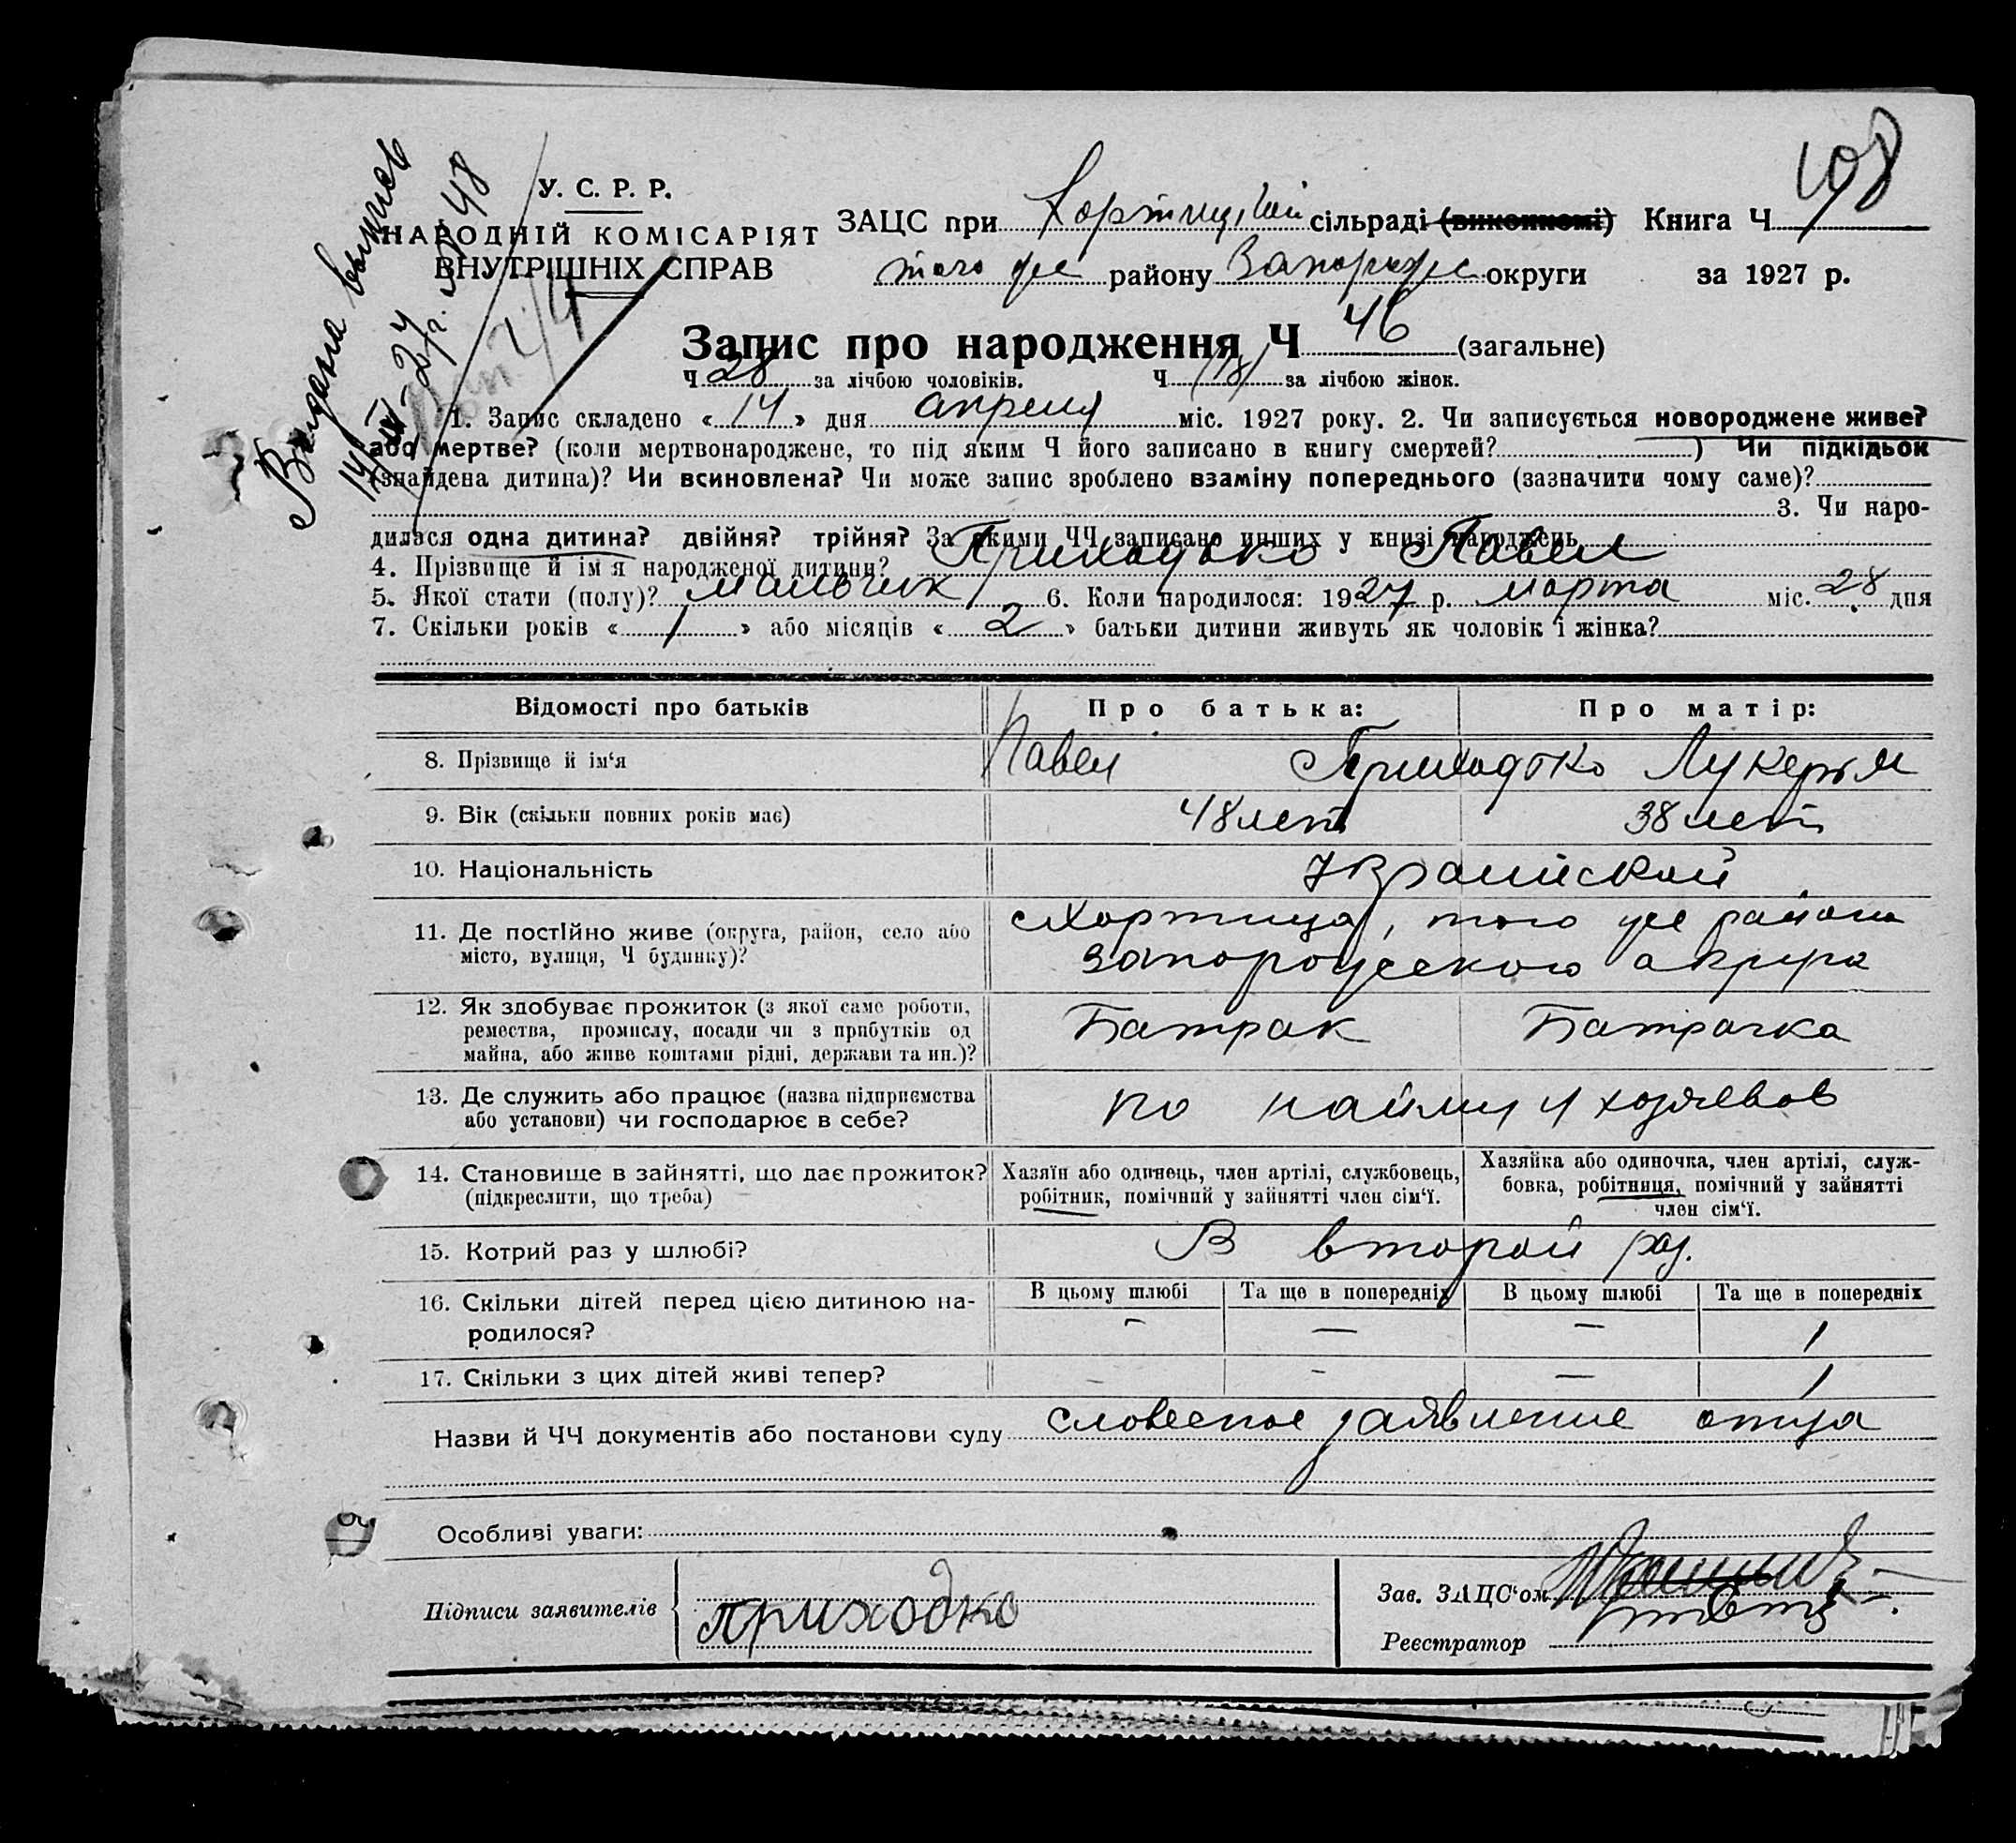 108
Видана выпись
14/IV-27 г. № 48
У. С. Р. Р.
НАРОДНІЙ КОМІСАРІЯТ
ВНУТРІШНІХ СПРАВ
ЗАЦС при Хортицький сільраді (виконкомі) Книга Ч
того же району Запорожс округи за 1927 р.
Запис про народження Ч 46 (загальне)
Ч 28 за лічбою чоловіків. Ч (18) за лічбою жінок.
1. Запис складено «14» дня апреля міс. 1927 року. 2. Чи записується новороджене живе?
або мертве? (коли мертвонароджене, то під яким Ч його записано в книгу смертей?) Чи підкідьок
(знайдена дитина)? Чи всиновлена? Чи може запис зроблено взаміну попереднього (зазначити чому саме)?
3. Чи наро-
дилася одна дитина? двійня? трійня? За якими ЧЧ записано инших у книзі народжень
4. Прізвище й ім'я народженої дитини? Приходько Павел
5. Якої стати (полу)? мальчик 6. Коли народилося: 1927 р. марта міс. 28 дня
7. Скільки років «1» або місяців «2» батьки дитини живуть як чоловік і жінка?
Відомості про батьків Про батька: Про матір:
8. Прізвище й ім‘я Павел Приходько Лукерья
9. Вік (скільки повних років має) 48 лет 38 лет
10. Національність Украинской
11. Де постійно живе (округа, район, село або
місто, вулиця, Ч будинку)?
с Хортица, того же района
запорожского округа
12. Як здобуває прожиток (з якої саме роботи,
ремества, промислу, посади чи з прибутків од
майна, або живе коштами рідні, держави та ин.)?
Батрак Батрачка
13. Де служить або працює (назва підприємства
або установи) чи господарює в себе?
по найму у хозяевов
14. Становище в зайнятті, що дає прожиток?
(підкреслити, що треба)
Хазяїн або одинець, член артілі, службовець,
робітник, помічний у зайнятті член сім‘ї.
Хазяйка або одиночка, член артілі, служ-
бовка, робітниця, помічний у зайнятті
член сім‘ї.
15. Котрий раз у шлюбі? В второй раз.
16. Скільки дітей перед цією дитиною на-
родилося?
В цьому шлюбі Та ще в попередніх В цьому шлюбі Та ще в попередніх
– — — 1
17. Скільки з цих дітей живі тепер? – - — 1
Назви й ЧЧ документів або постанови суду словесное заявление отца
Особливі уваги:
Підписи заявителів приходко
Зав. ЗАЦС‘ом
Реєстратор